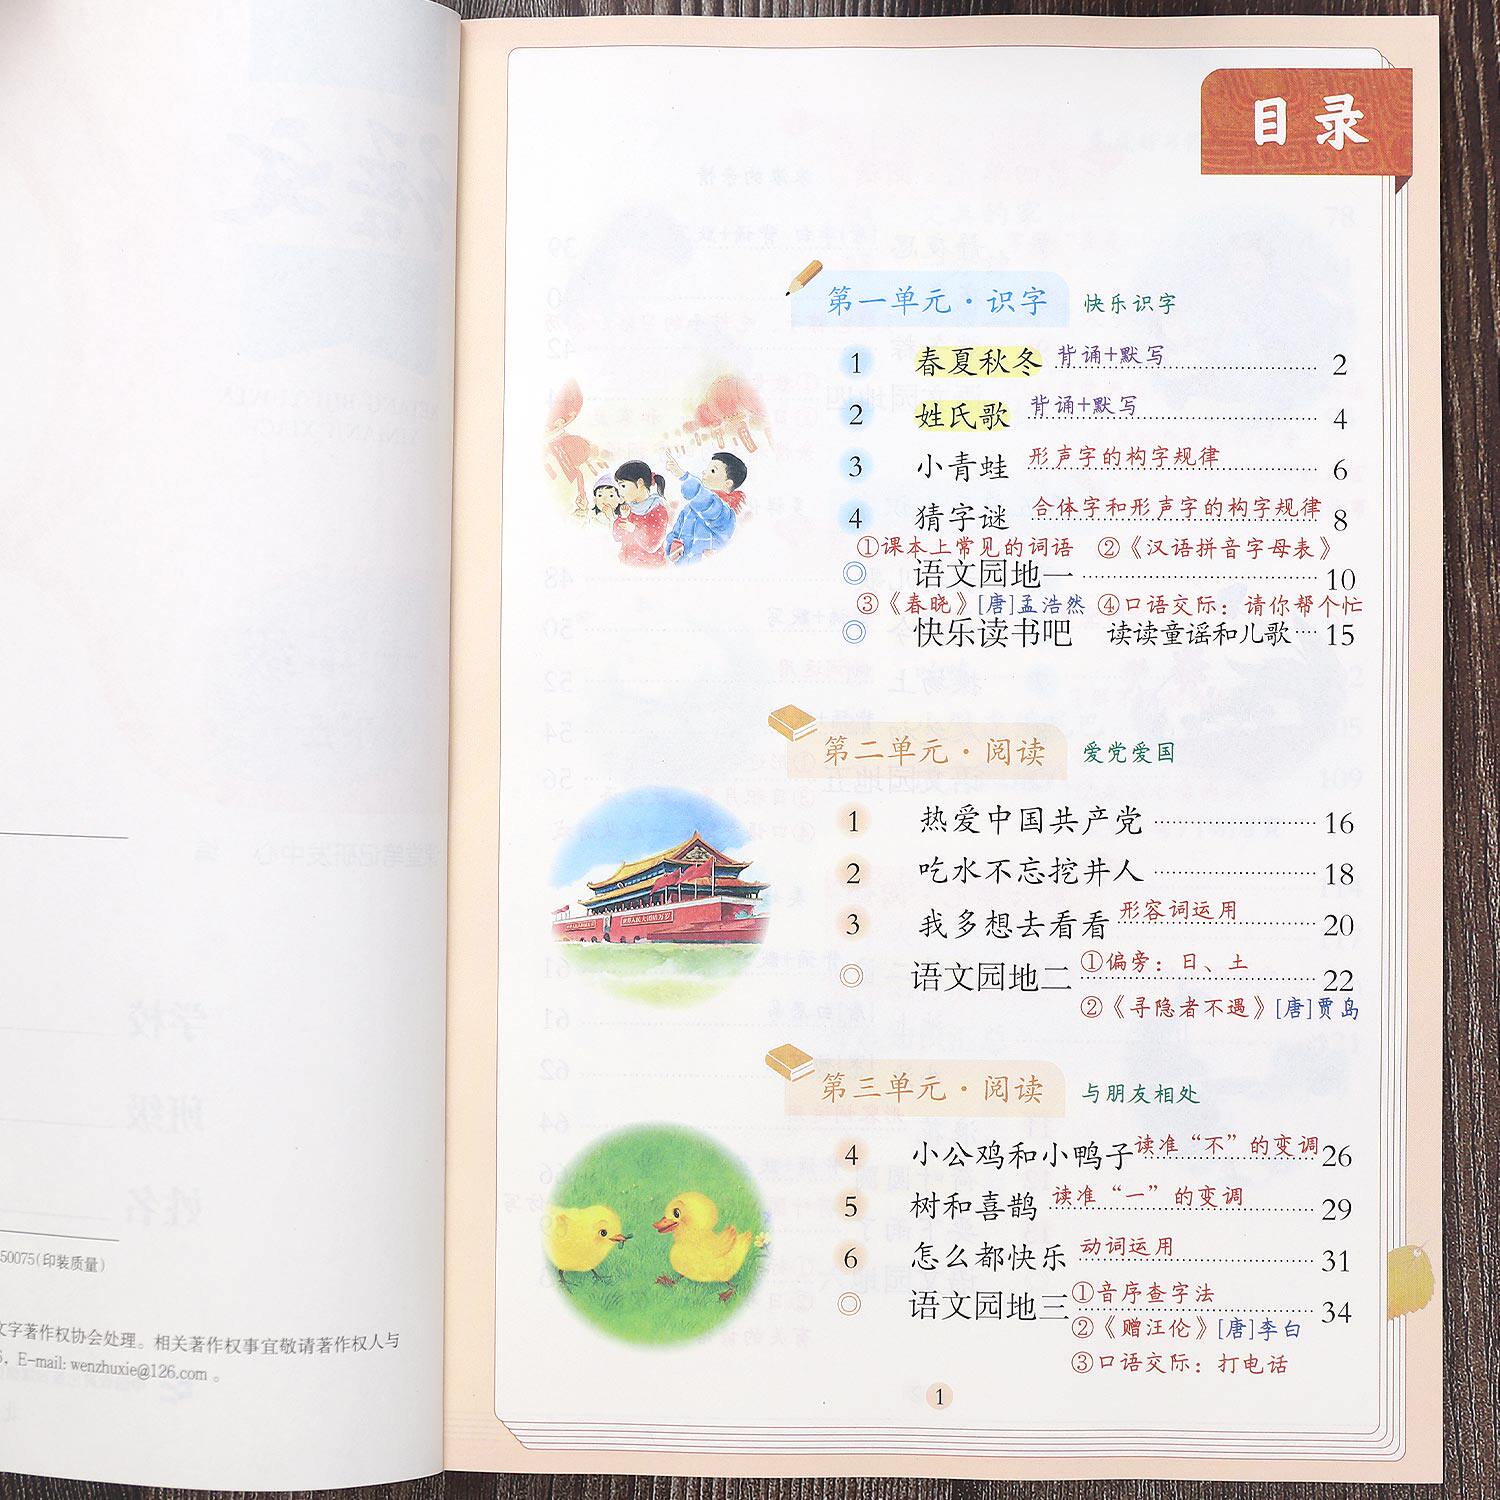 目录
第一单元·识字 快乐识字
1 春夏秋冬 背诵+默写 2
2 姓氏歌 背诵+默写 4
3 小青蛙 形声字的构字规律 6
4 猜字谜 合体字和形声字的构字规律 8
①课本上常见的词语 ②《汉语拼音字母表》
◎ 语文园地一 10
③《春晓》[唐]孟浩然 ④口语交际：请你帮个忙
◎ 快乐读书吧 读读童谣和儿歌 15
第二单元·阅读 爱党爱国
1 热爱中国共产党 16
2 吃水不忘挖井人 18
3 我多想去看看 形容词运用 20
◎ 语文园地二 ①偏旁：日、土 22
②《寻隐者不遇》[唐]贾岛
第三单元·阅读 与朋友相处
4 小公鸡和小鸭子 读准“不”的变调 26
5 树和喜鹊 读准“一”的变调 29
6 怎么都快乐 动词运用 31
◎ 语文园地三 ①音序查字法 34
②《赠汪伦》[唐]李白
③口语交际：打电话
1
50075(印装质量)
文字著作权协会处理。相关著作权事宜敬请著作权人与
E-mail: wenzhuxie@126.com。